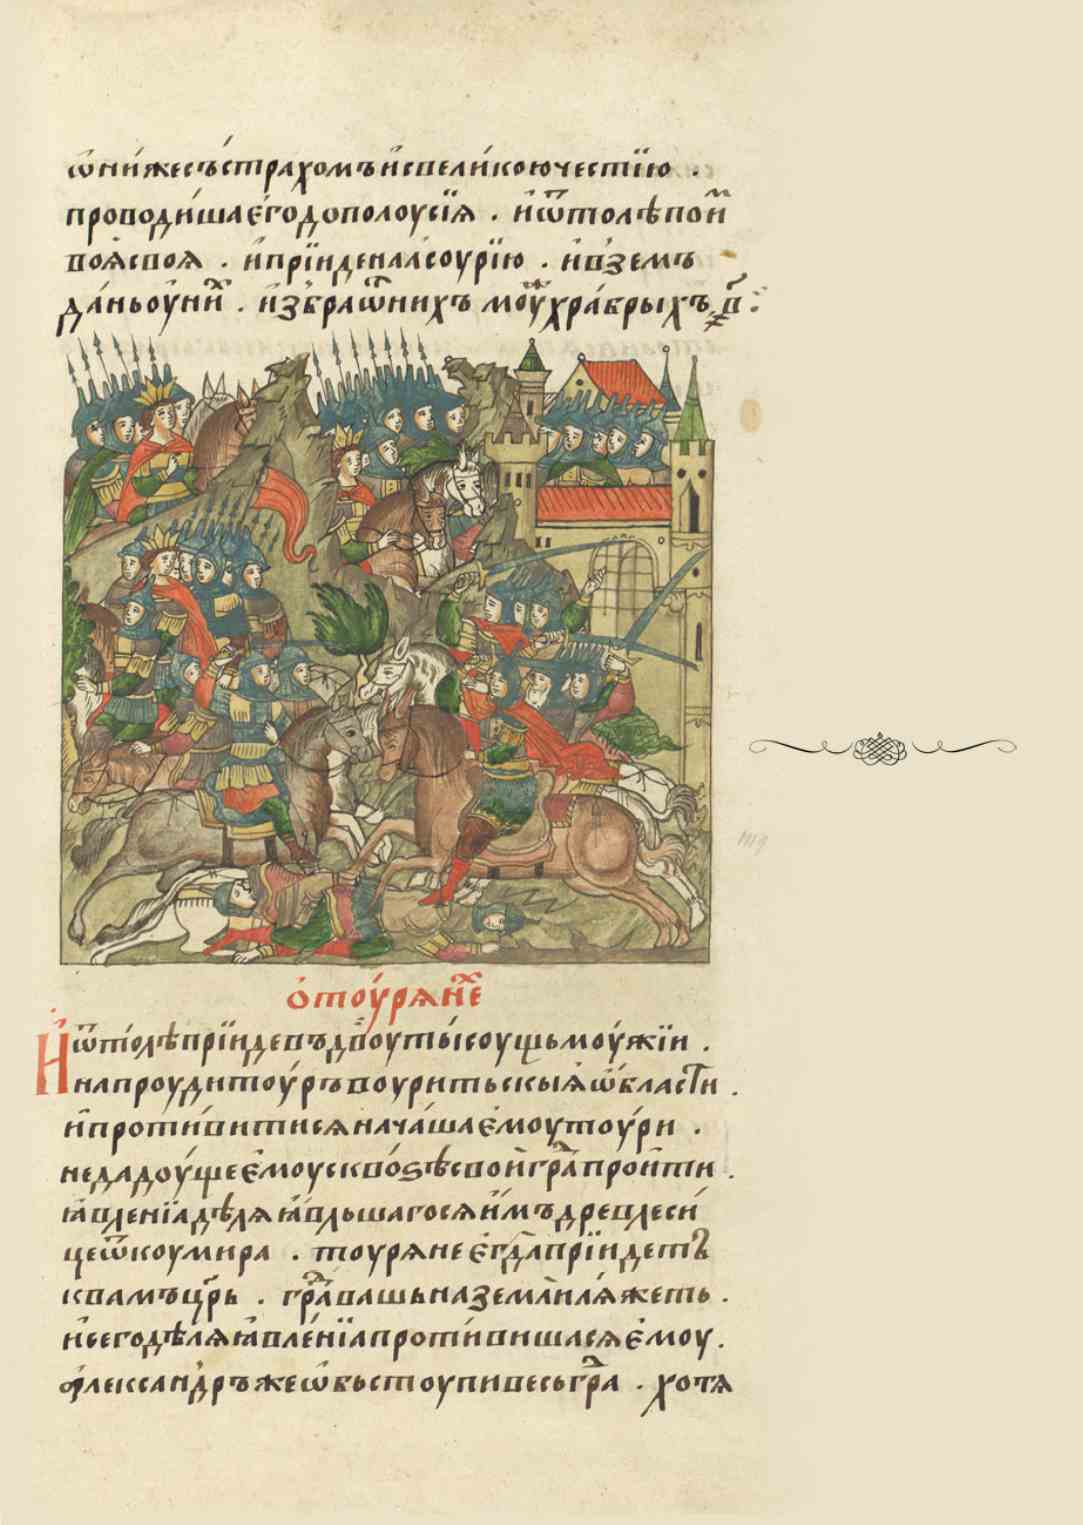 ѡни́жесъстрахомъи҆свели́коючестїю .
проводи́шає҆годополоусїꙗ . и҆ѿтолѣпои҆м
воѧ҆своѧ . и҆прїиденаасоурїю . и҆вземъ
да́ньоу҆ни́х . и҆збраѿнихъ моу́жхра́брыхъ в҃ :
ѡ҆тоу́рѧнехъ
И҆ѿто́лѣпрїидевъдвоуты́соущьмоу́жїи .
инапроудитоу́ръвоуритьскыѧѡ҆бласти .
и҆проти́витисѧнача́шає҆моутоу́ри .
недадоу́щеє҆моусквоѕѣ́свои҆гра́дпрои҆ти .
ꙗ҆вленїадѣлѧꙗ҆́вльшагосѧи҆́мъдревлеси́
цеѿкоумира . тоурѧнеє҆гда̀прїидетъ
квамъцр҃ь . гра́двашьназемлѝлѧ́жеть .
исегодѣлѧꙗ҆вле́нїапроти́вишасѧє҆моу .
а҆леѯандръжеѡ҆бьстоупивесьгра́д . хотѧ